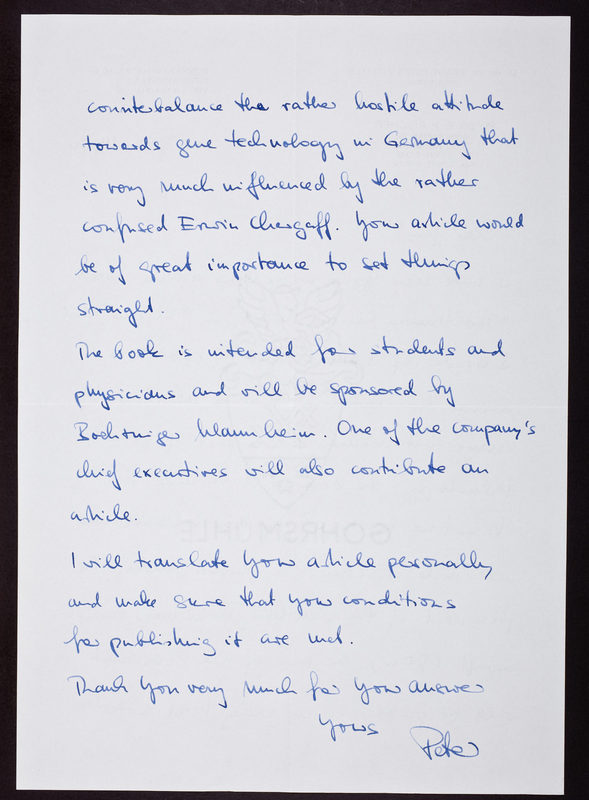 counterbalance the rather hostile attitude
towards gene technology in Germany that
is very much influenced by the rather
confused Erwin Chargaff. Your article would
be of great importance to set things
straight.
The book is intended for students and
physicians and will be sponsored by
Boehringer Mannheim. One of the company's
chief executives will also contribute an
article.
I will translate your article personally
and make sure that your conditions
for publishing it are met.
Thank you very much for your answer
Yours
Peter
GOHRSMÜHLE